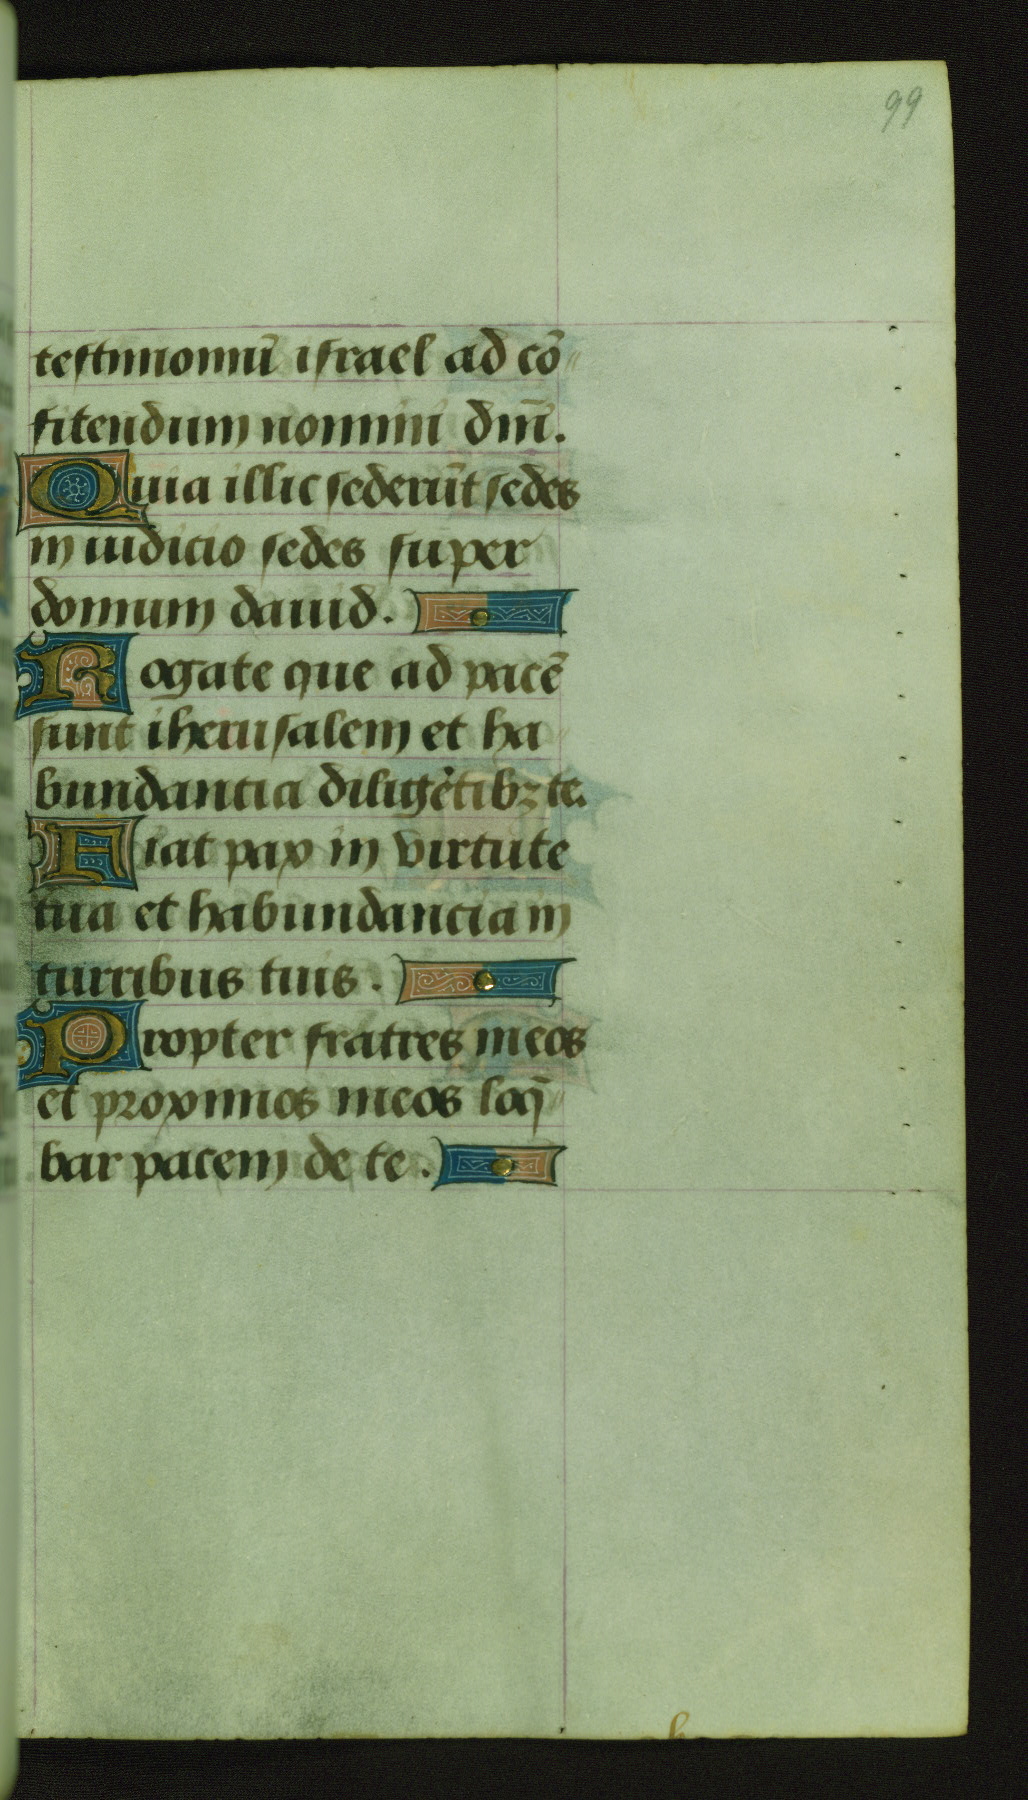 99
testimoniū israel ad cō
fitendum nomini dm̄.
Quia illic sederūt sedes
in iudicio sedes super
domum dauid.
Rogate que ad pacē
sunt iherusalem et ha
bundantia diligētibꝫ te.
Fiat pax in virtute
tua et habundantia in
turribus tuis.
Propter fratres meos
et proximos meos loq̄
bar pacem de te.